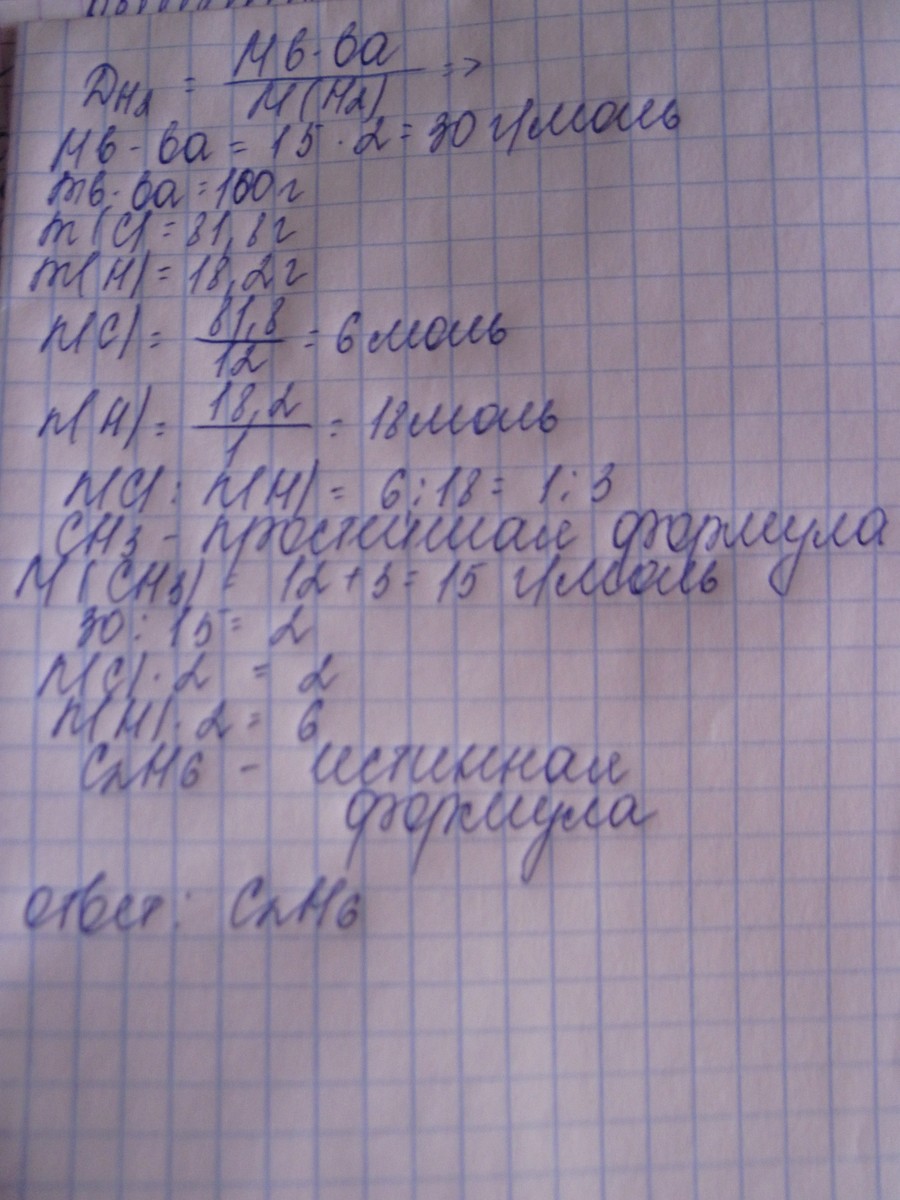 D H2 = M в-ва / M(H2) =>
M в-ва = 15 · 2 = 30 г/моль
m в-ва = 100 г
m(C) = 81,8 г
m(H) = 18,2 г
n(C) = 81,8 / 12 = 6 моль
n(H) = 18,2 / 1 = 18 моль
n(C) : n(H) = 6 : 18 = 1 : 3
CH3 - простейшая формула
M(CH3) = 12 + 3 = 15 г/моль
30 : 15 = 2
n(C) · 2 = 2
n(H) · 2 = 6
C2H6 - истинная
формула
Ответ: C2H6